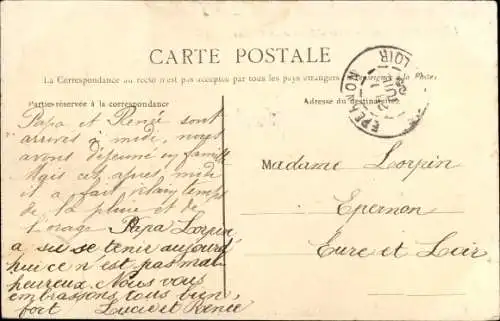 CARTE POSTALE
La Correspondance au recto n'est pas acceptée par tous les pays étrangers
Partie réservée à la correspondance
Adresse du destinataire
Papa et Renée sont
arrivés à midi, nous
avons déjeuné en famille
Mais cet après midi
il a fait vilain temps
de la pluie et de
l'orage Papa Lorpin
a su se tenir aujourd
hui ce n'est pas mal
heureux. Nous vous
embrassons tous bien
fort Lucie et Renée
Madame Lorpin
Epernon
Eure et Loir
EPERNON
LOIR